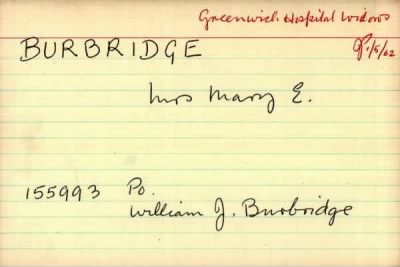 Greenwich Hospital Widows
BURBRIDGE
1/5/62
Mrs Mary E.
155993 Po.
William J. Burbridge